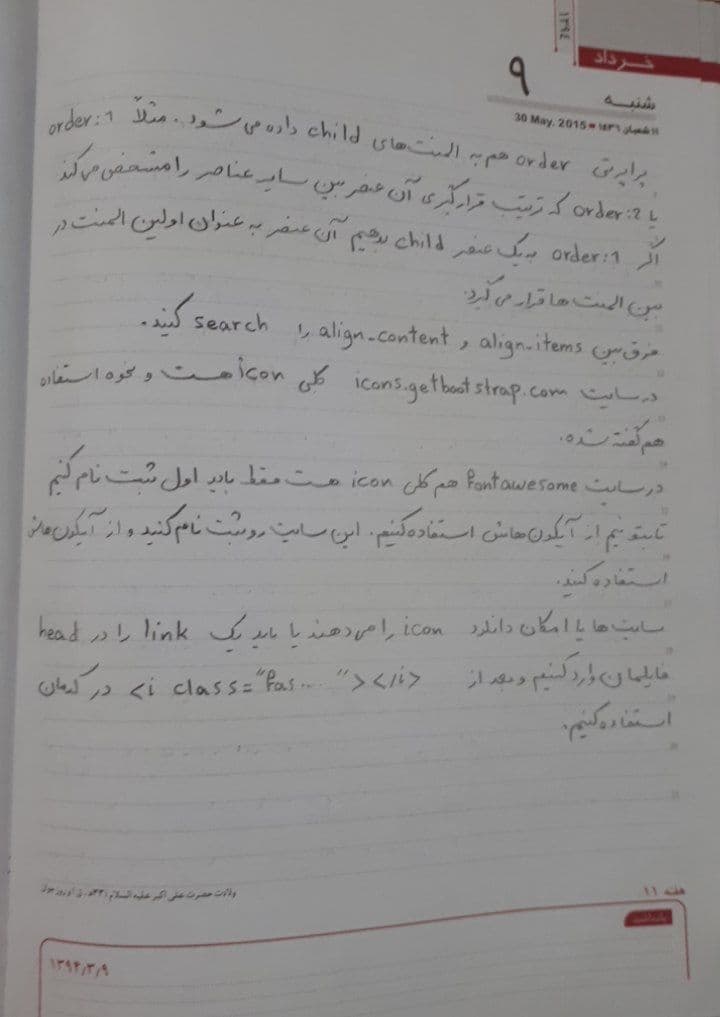 ۱۳۹۴
خرداد
۹
شنبه
30 May. 2015 ■ ۱۱ شعبان ۱۴۳۶
پراپرتی order هم به المنت‌های child داده می‌شود. مثلاً order:1
یا order:2 که ترتیب قرارگیری آن عنصر بین سایر عناصر را مشخص می‌کند
اگر order:1 به یک عنصر child بدهیم آن عنصر به عنوان اولین المنت در
بین المنت ها قرار می گیرد.
فرق بین align-items و align-content را search کنید.
در سایت icons.getbootstrap.com کلی icon هست و نحوه استفاده
هم گفته شده.
در سایت Fontawesome هم کلی icon هست فقط باید اول ثبت نام کنیم
تا بتونیم از آیکون هاش استفاده کنیم. این سایت رو ثبت نام کنید و از آیکون هاش
استفاده کنید.
سایت ها یا امکان دانلود icon را می دهند یا باید یک link را در head
فایلمان وارد کنیم و بعد از <i class="fas..."></i> در کدمان
استفاده کنیم.
هفته ۱۱
ولادت حضرت علی اکبر علیه السلام
یادداشت
۱۳۹۴/۳/۹